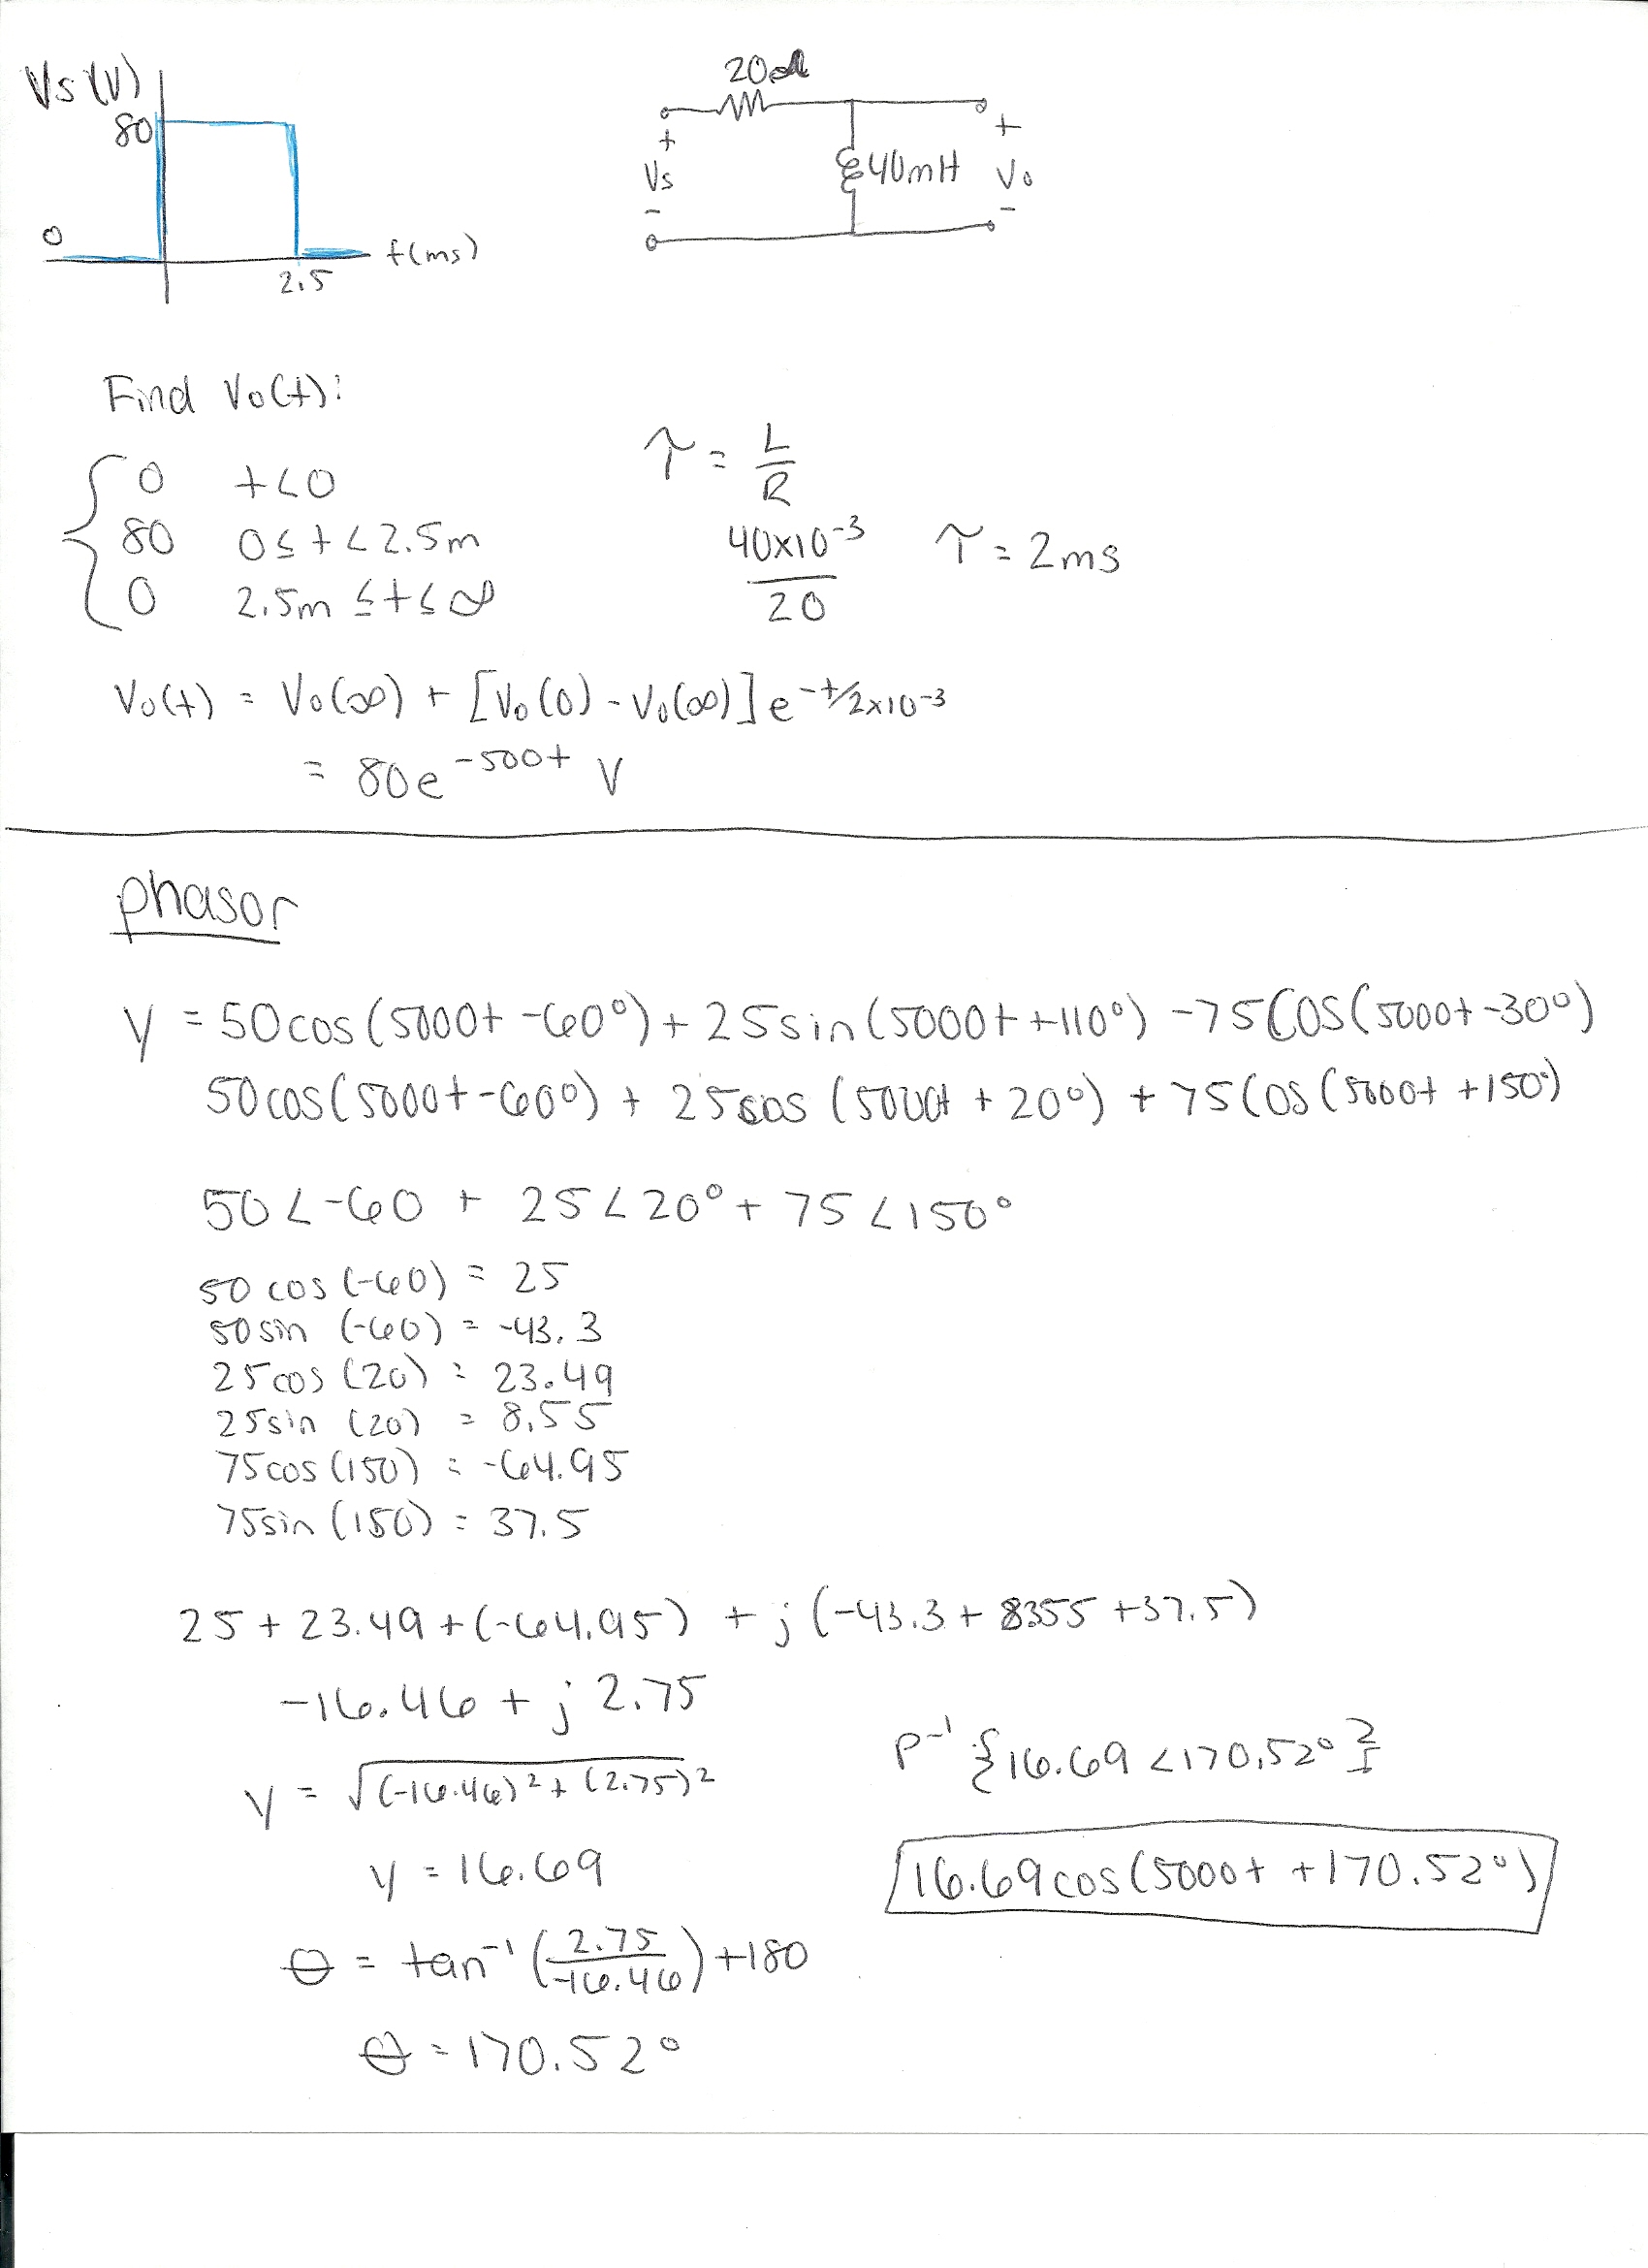 Vs (V)
80
0
t(ms)
2.5
20Ω
+
Vs
-
40mH
+
Vo
-
Find Vo(t):
0 t<0
80 0≤t<2.5m
0 2.5m≤t≤∞
τ = L/R
40x10^-3 / 20
τ = 2ms
Vo(t) = Vo(∞) + [Vo(0) - Vo(∞)] e^-t/2x10^-3
= 80e^-500t V
phasor
y = 50cos(5000t -60°) + 25sin(5000t +110°) -75Cos(5000t -30°)
50cos(5000t -60°) + 25cos(5000t + 20°) + 75Cos(5000t +150°)
50<-60 + 25<20° + 75<150°
50 cos (-60) = 25
50sin (-60) = -43.3
25cos (20) = 23.49
25sin (20) = 8.55
75cos (150) = -64.95
75sin (150) = 37.5
25 + 23.49 + (-64.95) + j (-43.3 + 8355 + 37.5)
-16.46 + j 2.75
y = √(-16.46)² + (2.75)²
y = 16.69
θ = tan^-1 (2.75/-16.46) +180
θ = 170.52°
P^-1 {16.69 <170.52°}
16.69cos(5000t +170.52°)